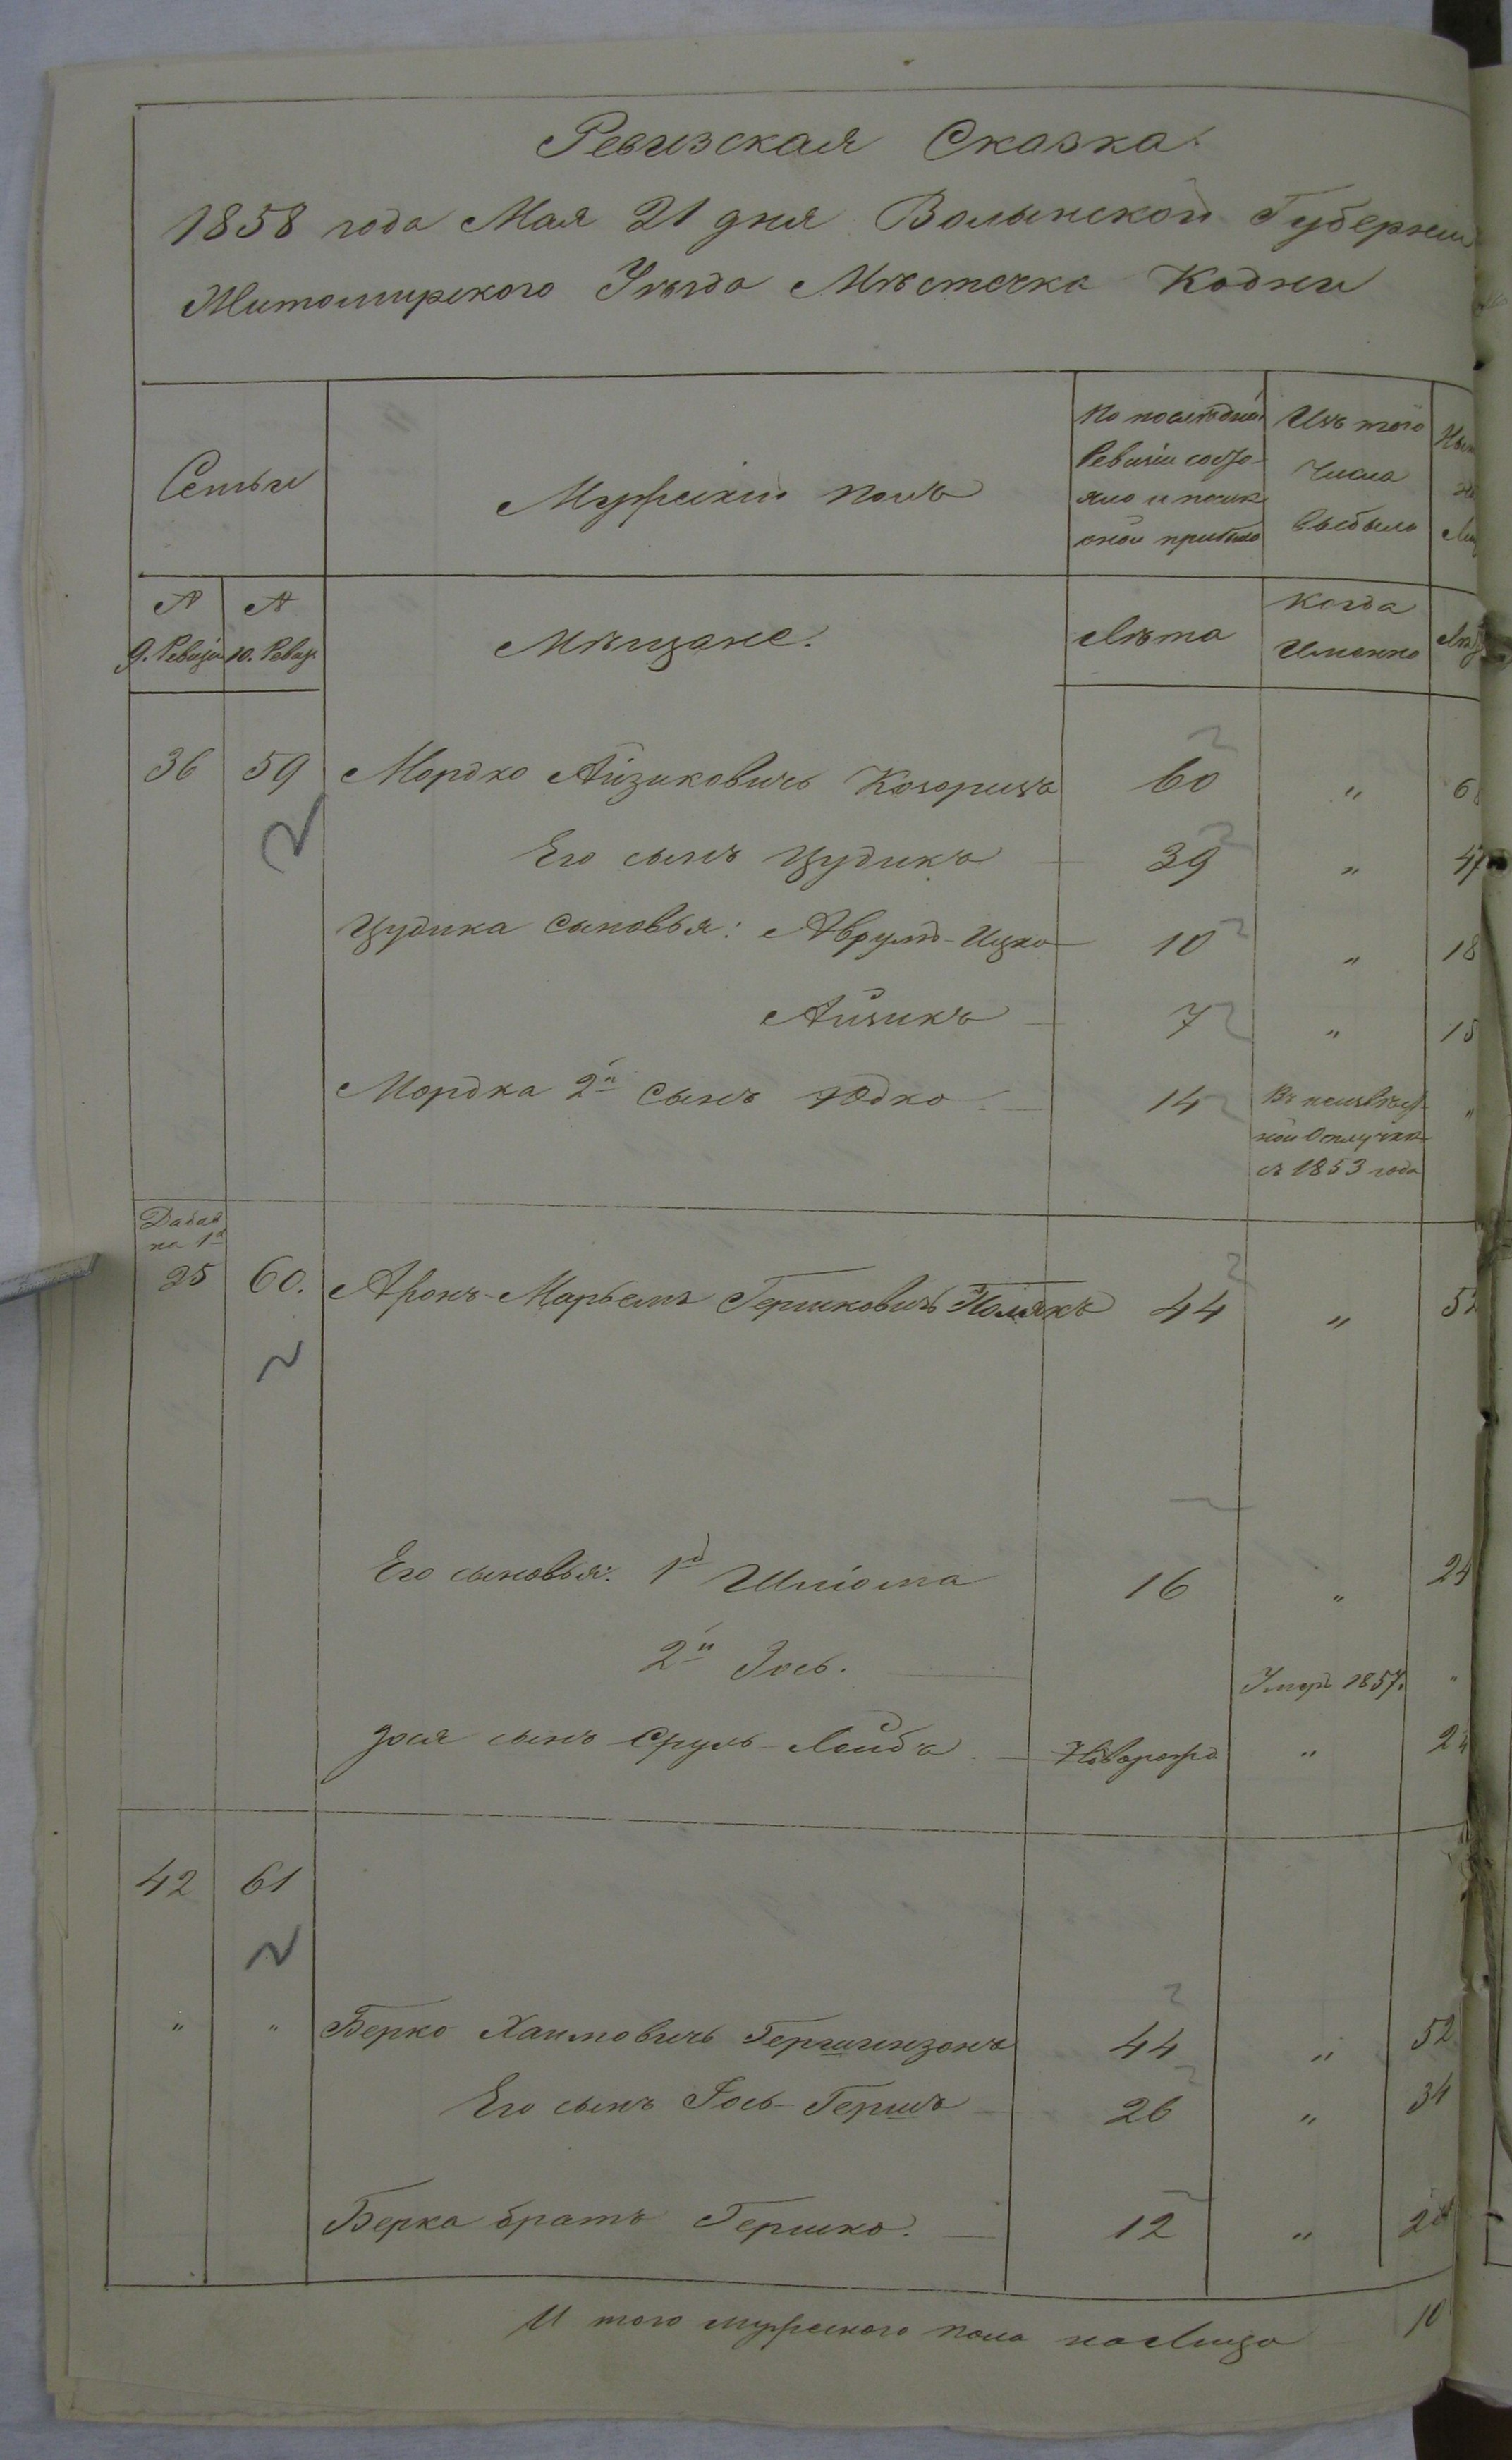 Ревизская Сказка.
1858 года Мая 21 дня Волынской Губернии
Житомирского Уѣзда Мѣстечка Кодни
Семьи
Мужескій полъ
По послѣдней Ревизіи состояло и послѣ оной прибыло
Изъ того числа выбыло
№ 9. Ревизіи
№ 10. Ревиз.
Мѣщане.
Лѣта
Когда Именно
36 59 Мордко Айзиковичь 60 "
Его сынъ Цудикъ 39 "
Цудика сыновья: Аврумъ-Ицко 10 " 18
Айзикъ 7 " 15
Мордка 2й сынъ Юдко. 14 Въ неизвѣстной Отлучкѣ съ 1853 года "
Добав на 1й
25 60. Аронъ-Марьемъ Гершковичъ Полякъ 44 " 52
Его сыновья: 1й Шліома 16 " 24
2й Іось. Умеръ 1857. "
Іося сынъ Сруль-Лейба. Новорожд "
42 61
" " Берко Хаимовичь Гершензонъ 44 " 52
Его сынъ Іось-Гершъ 26 " 34
Берка братъ Гершко. 12 "
И того мужескаго пола на Лицо 10